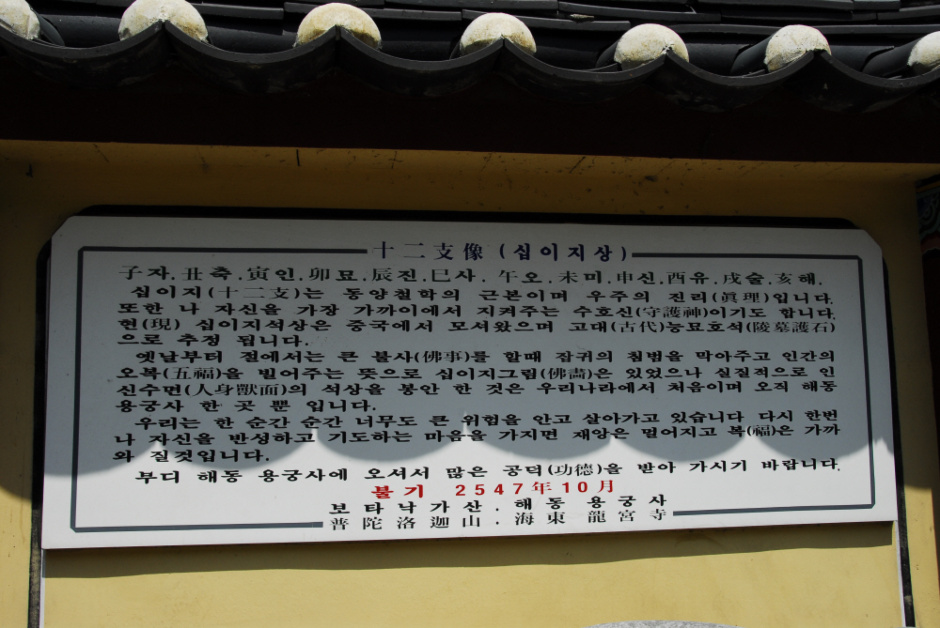 十二支像 (십이지상)
子자, 丑축, 寅인, 卯묘, 辰진, 巳사, 午오, 未미, 申신, 酉유, 戌술, 亥해,
십이지(十二支)는 동양철학의 근본이며 우주의 진리(眞理)입니다.
또한 나 자신을 가장 가까이에서 지켜주는 수호신(守護神)이기도 합니다.
현(現) 십이지석상은 중국에서 모셔왔으며 고대(古代)능묘호석(陵墓護石)
으로 추정 됩니다.
옛날부터 절에서는 큰 불사(佛事)를 할때 잡귀의 침범을 막아주고 인간의
오복(五福)을 빌어주는 뜻으로 십이지그림(佛畵)은 있었으나 실질적으로 인
신수면(人身獸面)의 석상을 봉안 한 것은 우리나라에서 처음이며 오직 해동
용궁사 한 곳 뿐 입니다.
우리는 한 순간 순간 너무도 큰 위험을 안고 살아가고 있습니다 다시 한번
나 자신을 반성하고 기도하는 마음을 가지면 재앙은 멀어지고 복(福)은 가까
와 질것입니다.
부디 해동 용궁사에 오셔서 많은 공덕(功德)을 받아 가시기 바랍니다.
불기 2547年 10月
보타낙가산 . 해동 용궁사
普陀洛迦山 . 海東 龍宮寺